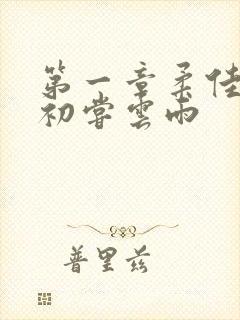 第一章柔佳
初嘗雲雨
普里兹